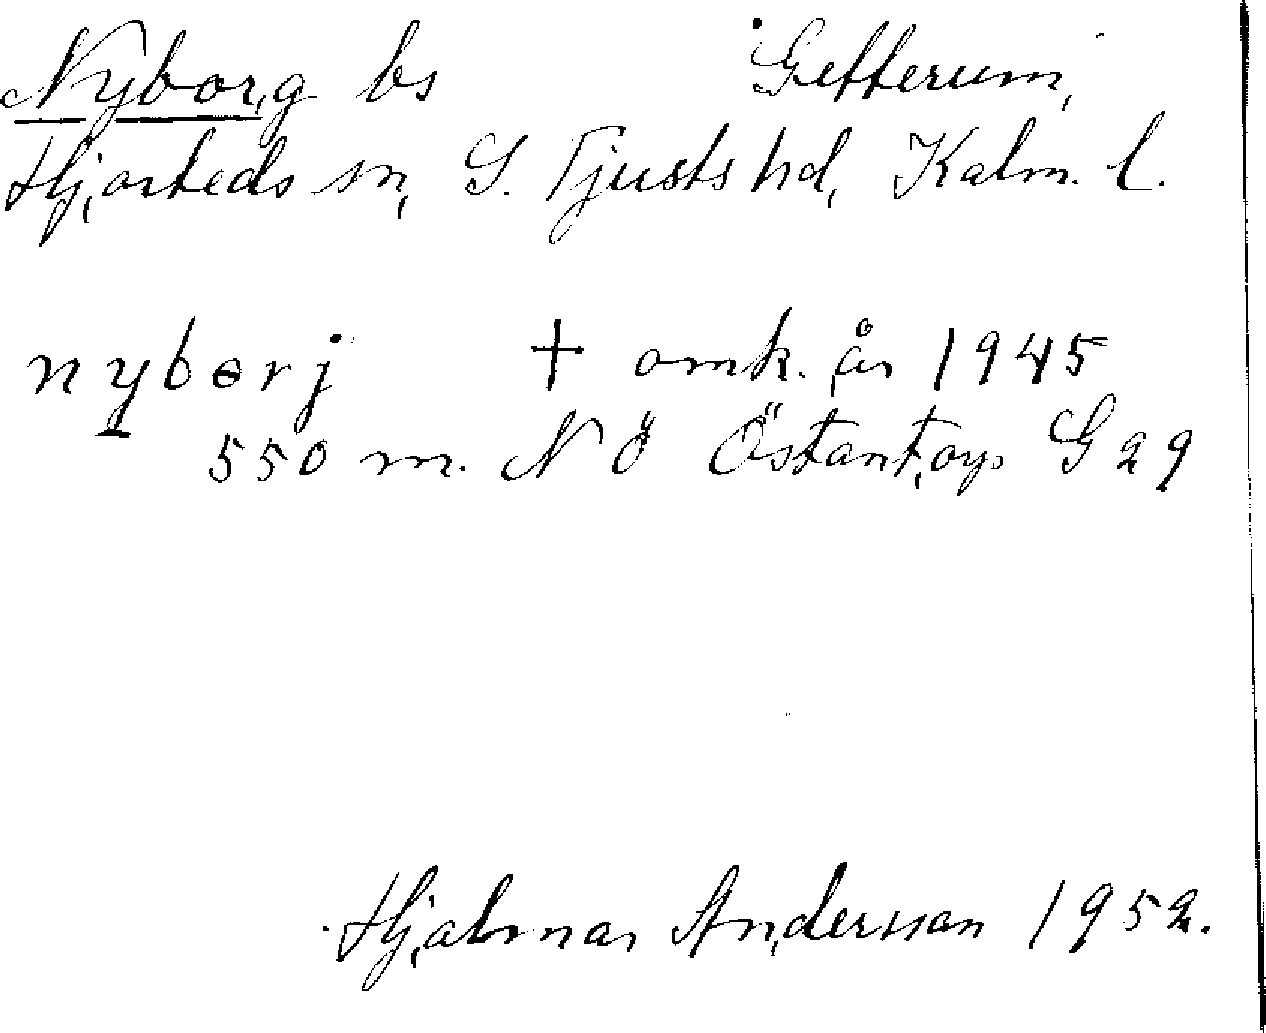 Nyborg bs Getterum,
Hjorteds sn, S. Tjusts hd, Kalm. l.
nyborj † omk. år 1945
550 m. NÖ Östantorp G 29
Hjalmar Andersson 1952.